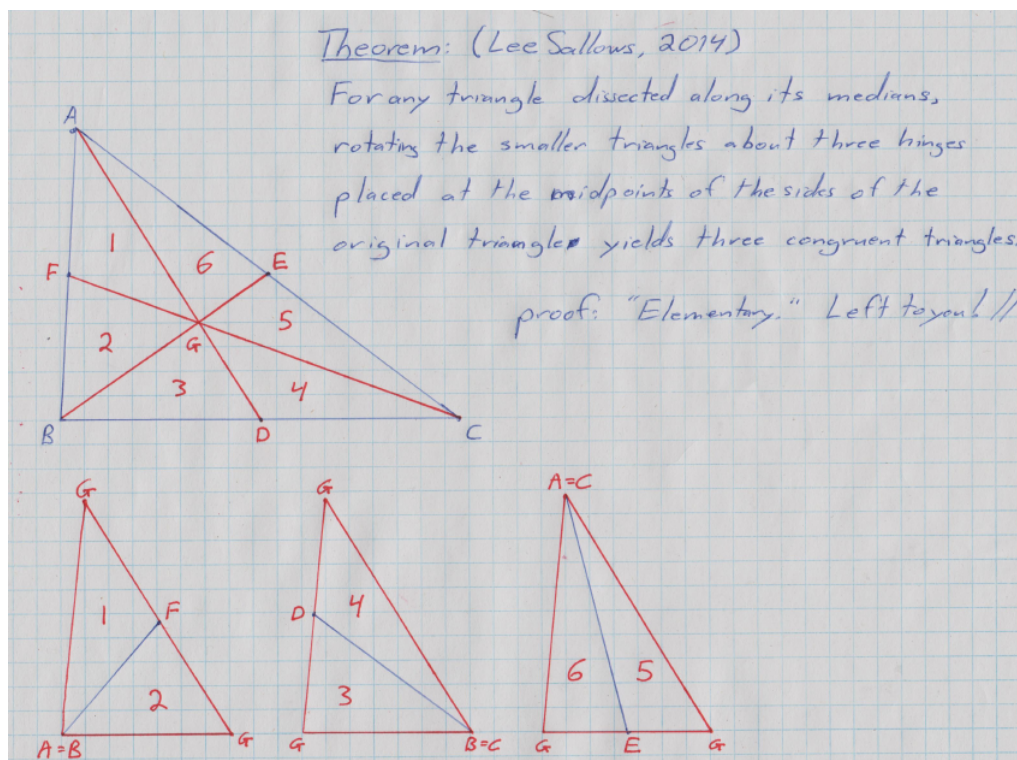 Theorem: (Lee Sallows, 2014)
For any triangle dissected along its medians,
rotating the smaller triangles about three hinges
placed at the midpoints of the sides of the
original triangle yields three congruent triangles.
proof: "Elementary." Left to you! //
A
1
6
E
F
5
2
G
3
4
B
D
C
G
1
F
2
A=B
G
G
4
D
3
G
B=C
A=C
6
5
G
E
G